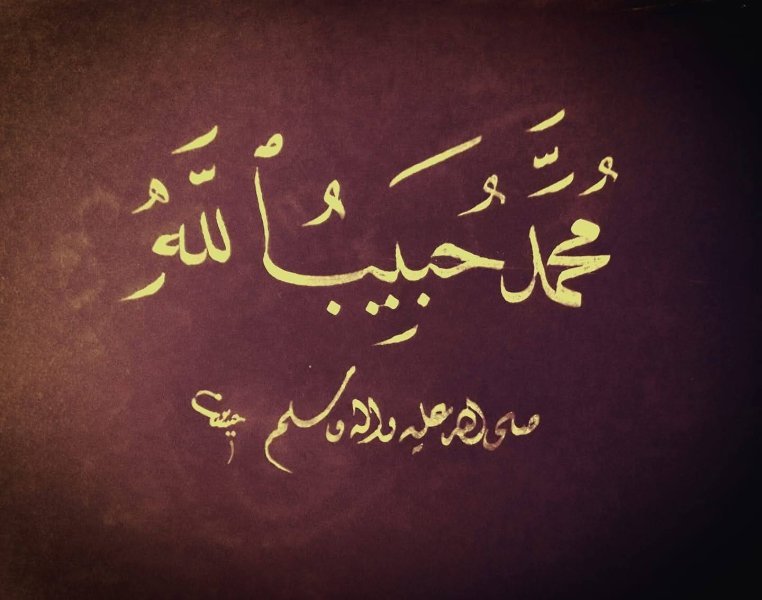 مُحمَّدُ حَبِيبُ ٱللَّهِ
صلى الله عليه واله وسلم